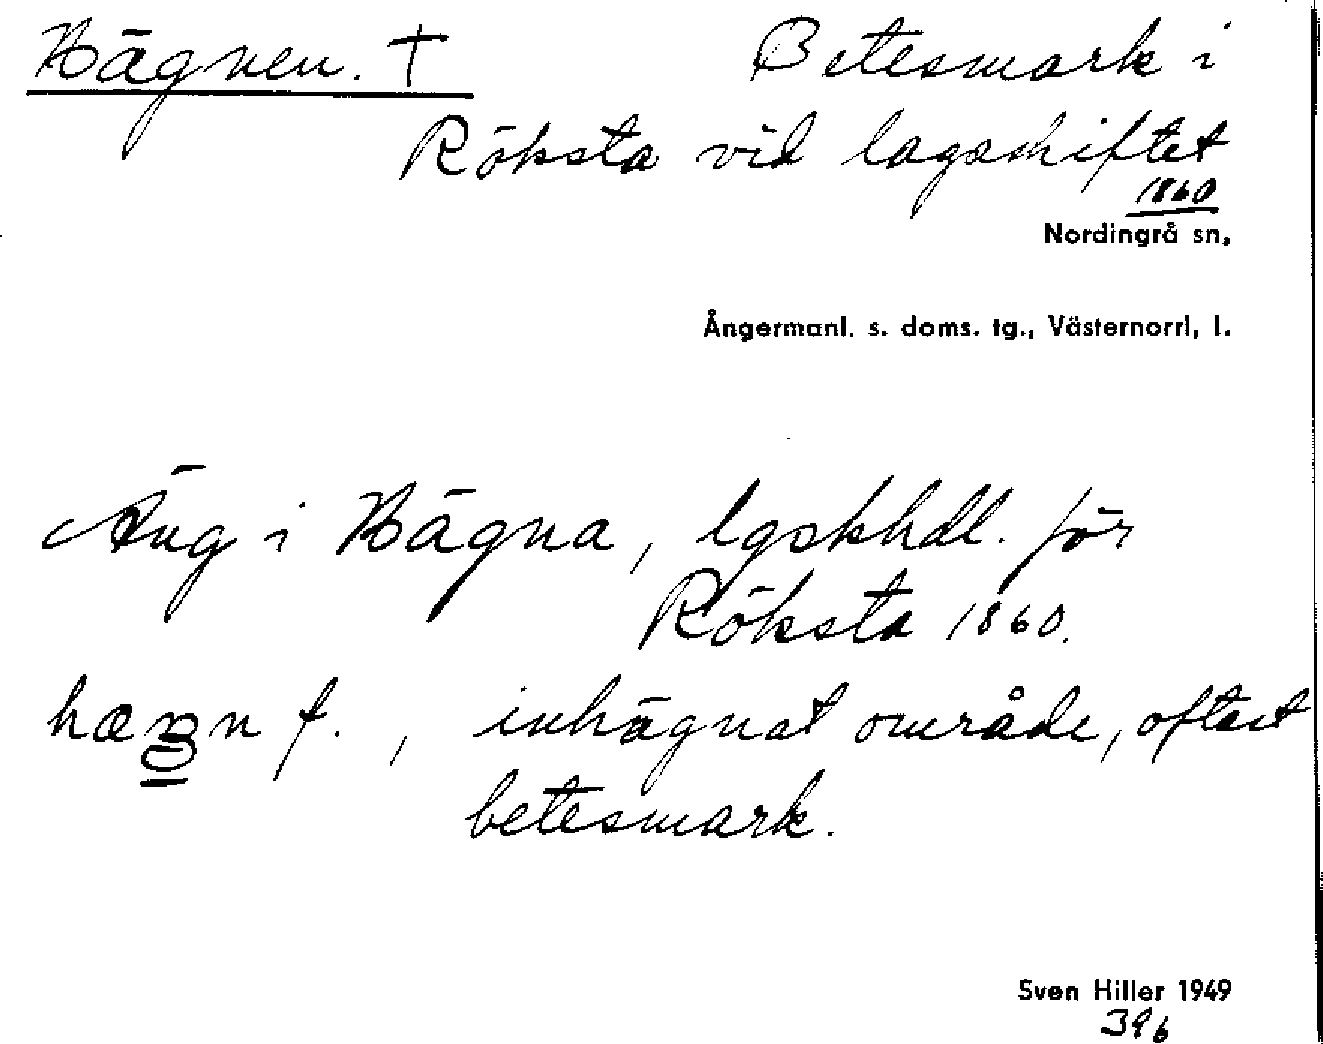 Hägnen. † Betesmark i
Röksta vid lagaskiftet
1860
Nordingrå sn,
Ångermanl. s. doms. tg., Västernorrl, l.
Äng i Hägna, lgskhdl. för
Röksta 1860.
hægn f., inhägnat område, oftast
betesmark.
Sven Hiller 1949
396